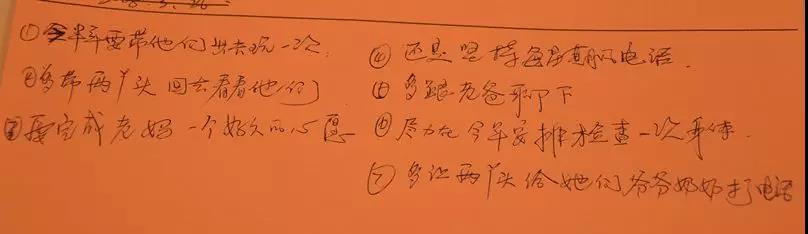 ①半年要带他们出去玩一次.
②多带两丫头回去看看他们
③要完成老妈一个好久的心愿
④还是坚持每星期打电话.
⑤多跟老爸聊下
⑥尽力在今年安排检查一次身体.
⑦多让两丫头给她们爷爷奶奶打电话